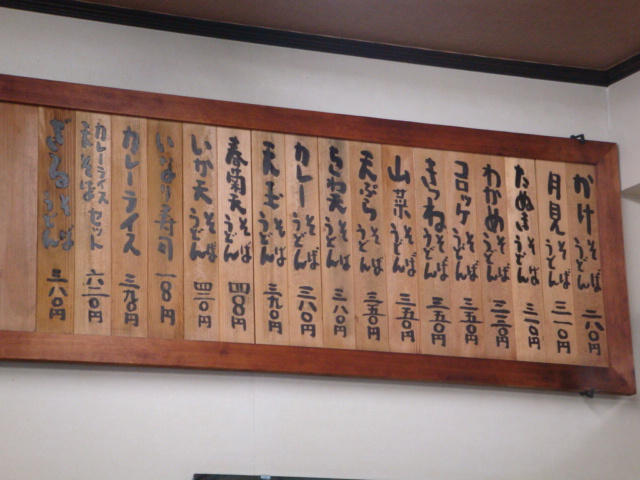 かけそばうどん二六〇円
月見そばうどん三一〇円
たぬきそばうどん三一〇円
わかめそばうどん三三〇円
コロッケそばうどん三五〇円
きつねそばうどん三五〇円
山菜そばうどん三五〇円
天ぷらそばうどん三五〇円
ちくわ天そばうどん三八〇円
カレーそばうどん三八〇円
天玉そばうどん三九〇円
春菊天そばうどん四〇〇円
いか天そばうどん四三〇円
いなり寿司一八〇円
カレーライス三九〇円
カレーライス天そばセット六三〇円
ざるそばうどん三八〇円